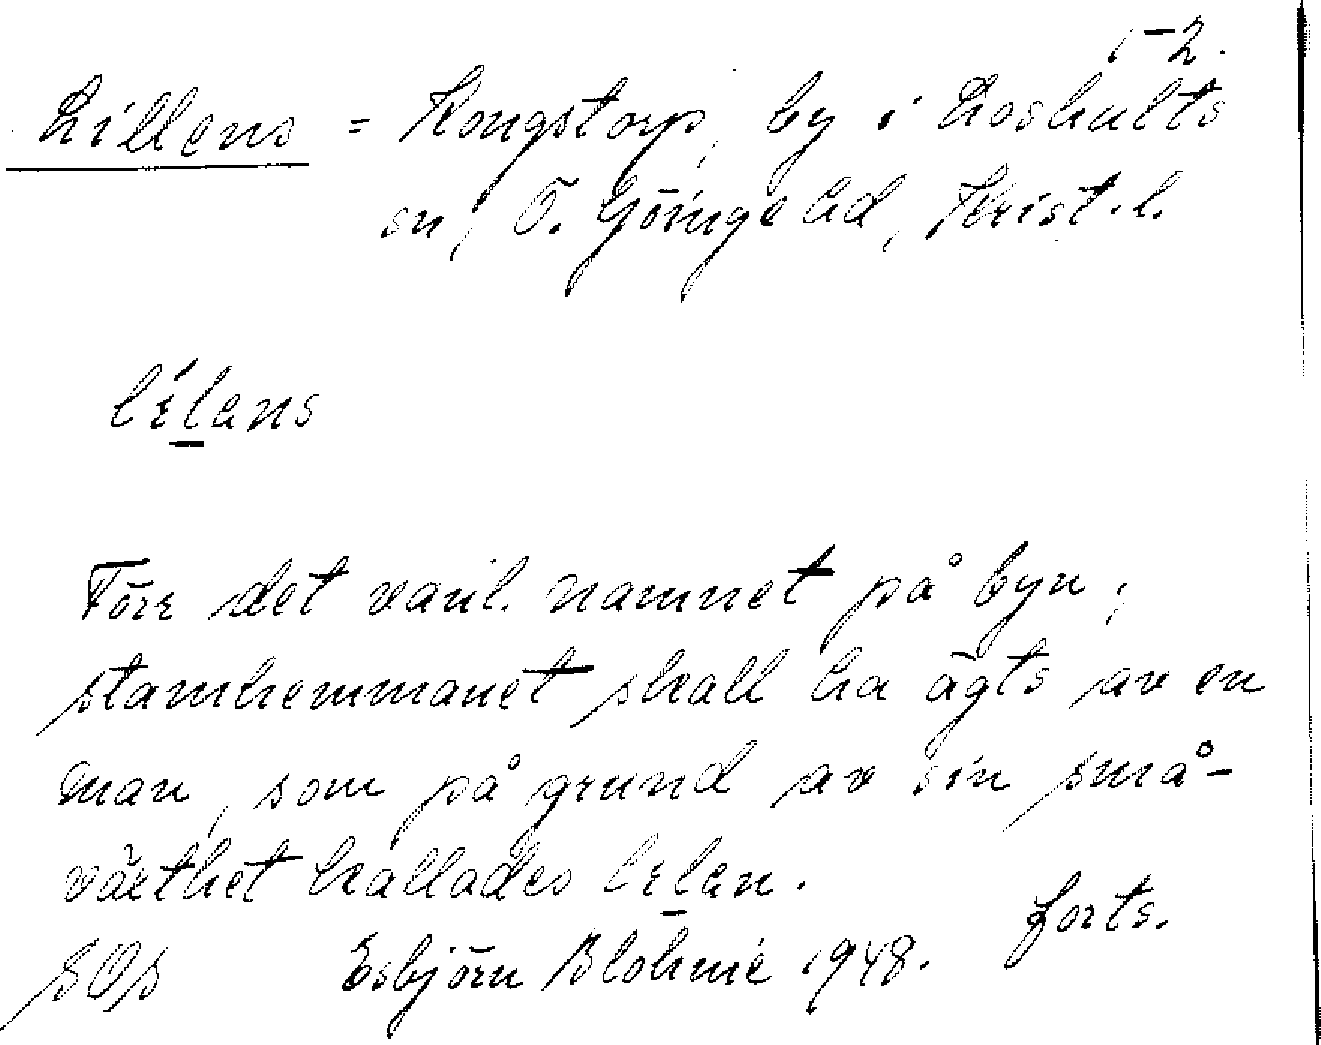 1-2.
Lillens = Kongstorp, by i Loshults
sn, Ö. Göinge hd, Krist. l.
lɛ́lans
Förr det vanl. namnet på byn;
stamhemmanet skall ha ägts av en
man, som på grund av sin små-
växthet kallades lɛlan.
forts.
SOS Esbjörn Blohmé 1948.